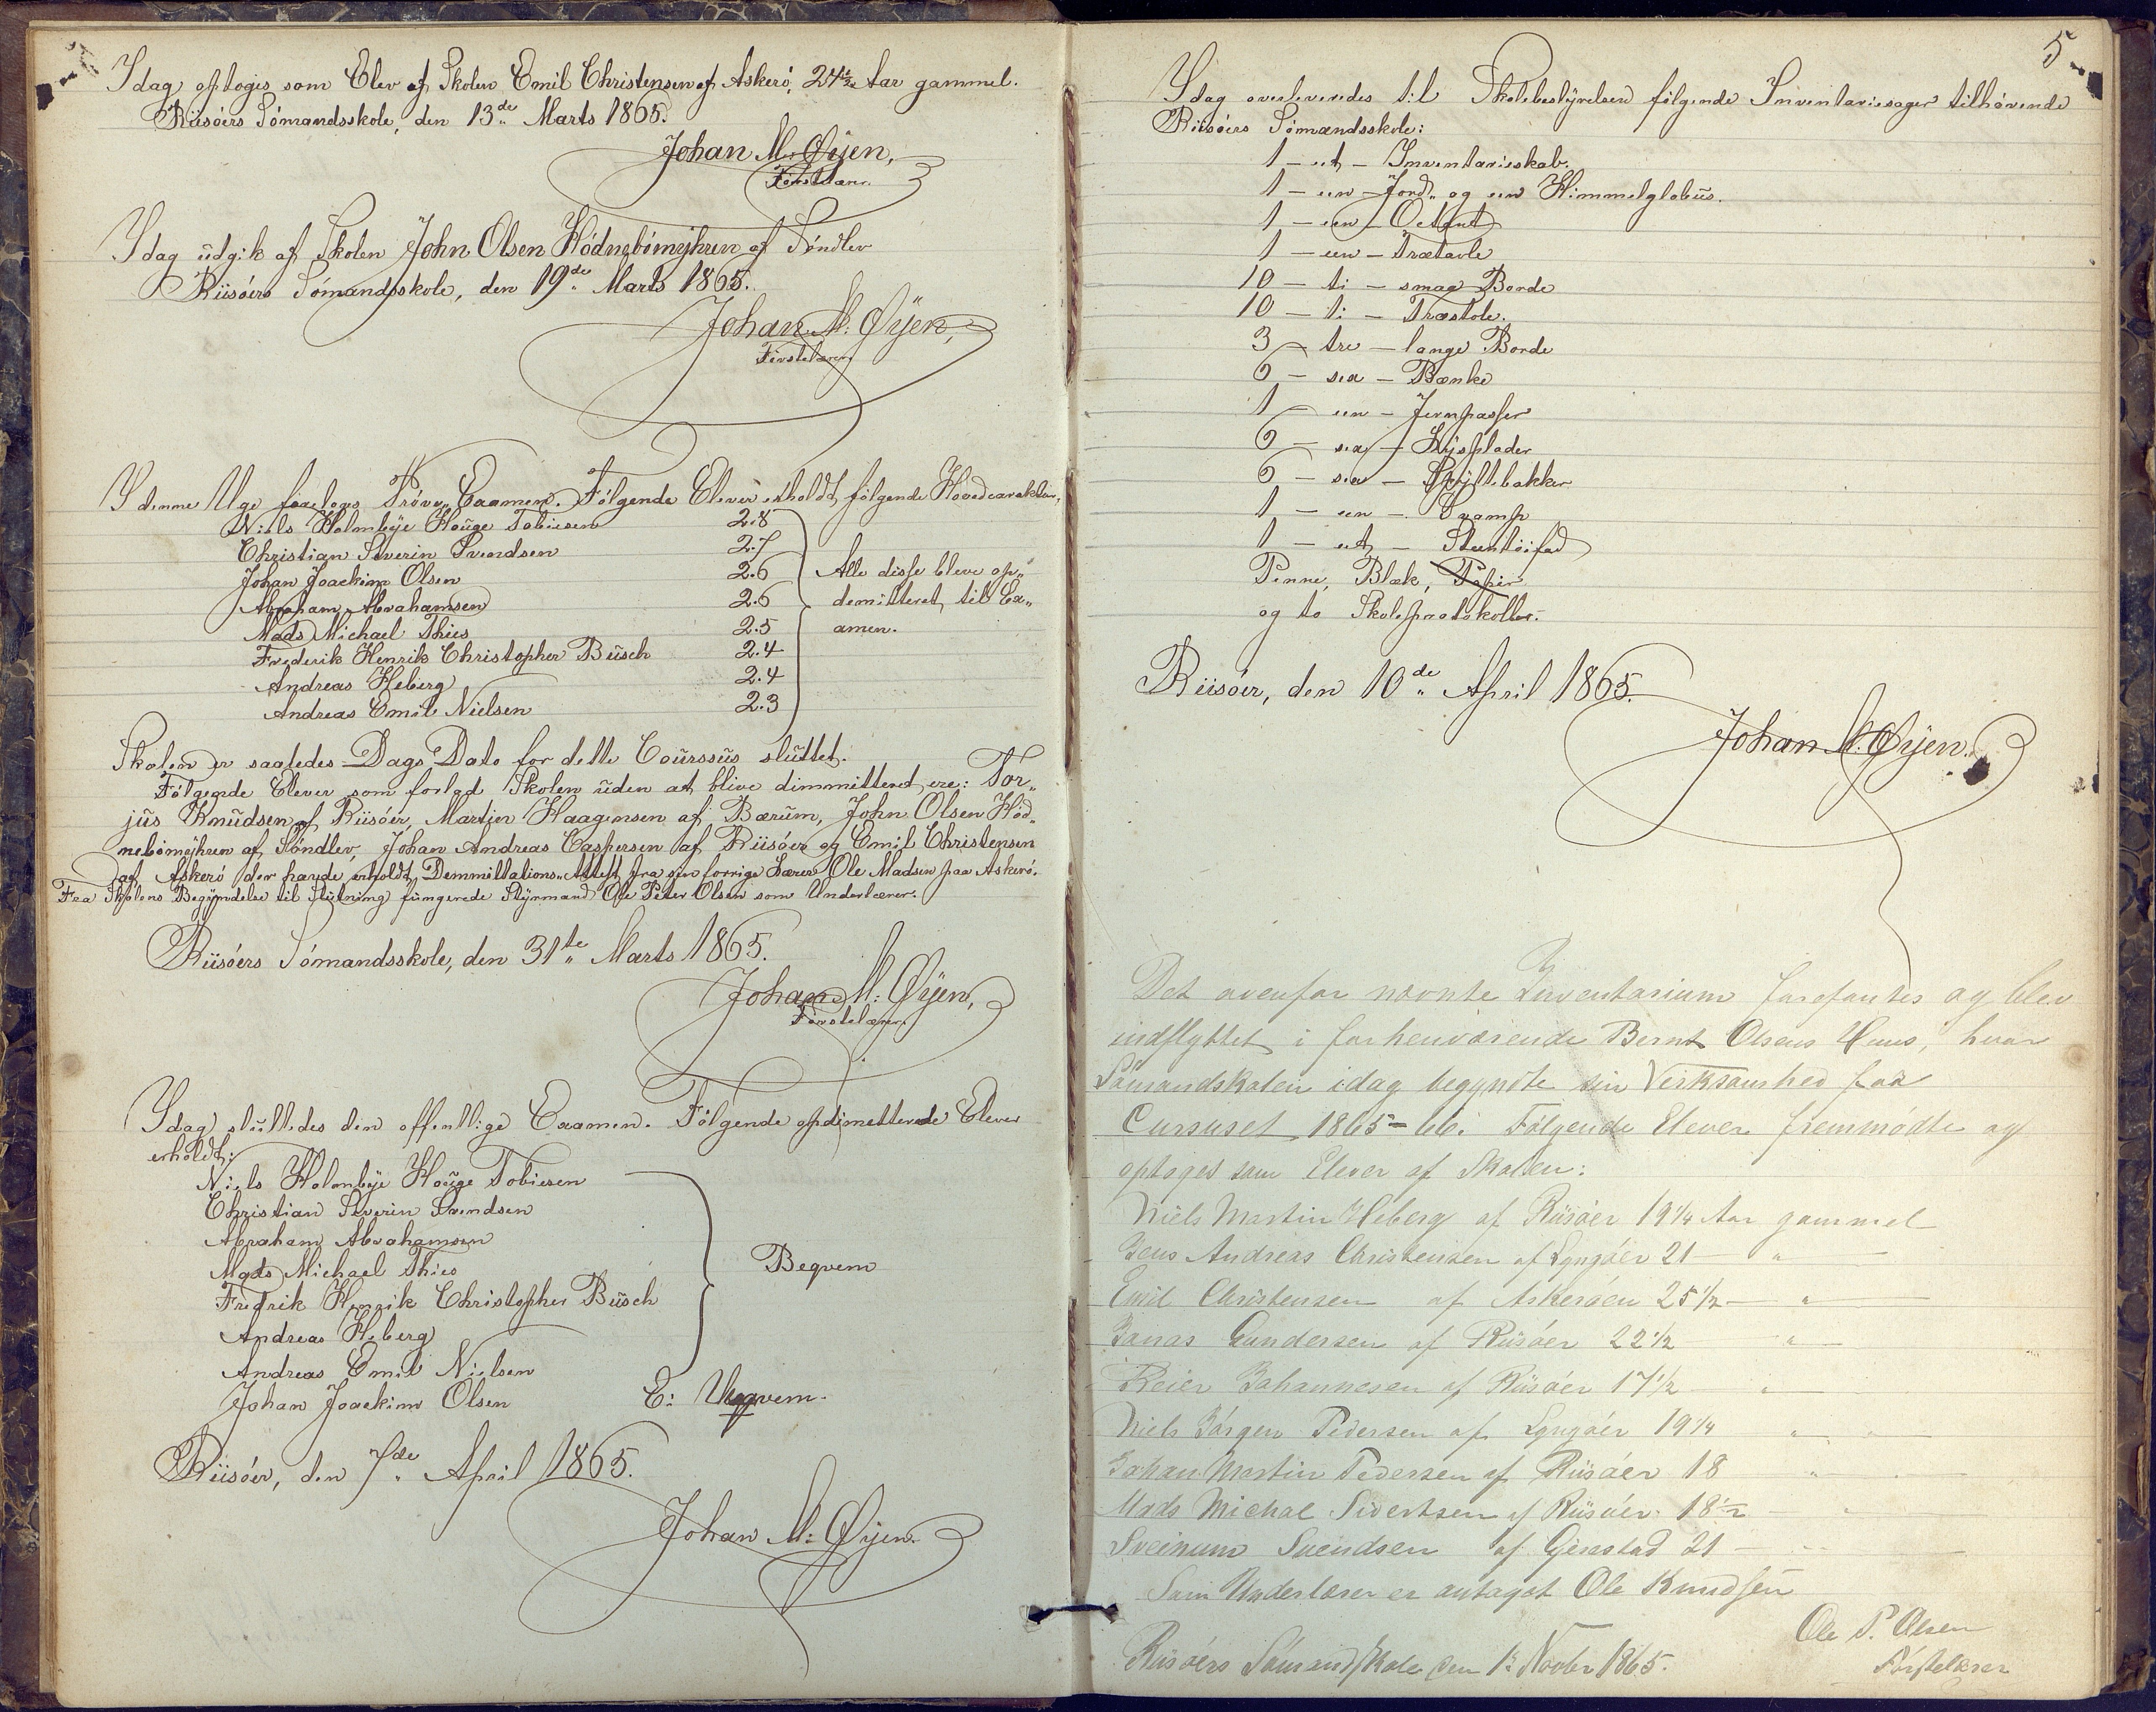 Idag optoges som Elev af Skolen Emil Christensen af Askerö, 24½ Aar gammel.
Riisöers Sömandsskole, den 13de Marts 1865.
Johan M: Øÿen,
Förstelærer.
Idag üdgik af Skolen John Olsen Hödnebömÿhren af Söndlev
Riisöers Sömandsskole, den 19de Marts 1865.
Johan M: Øÿen,
Förstelærer.
I denne Uge foretoges Pröve„Examen. Fölgende Elever erholdt fölgende Hovedcarakter,
Niels Holmbÿe Houge Tobiesen 2.8
Christian Severin Svendsen 2.7
Johan Joackim Olsen 2.6 Alle disse bleve op„
Abraham Abrahamsen 2.6 demitteret til Ex„
Mads Michael Thies 2.5 amen.
Frederik Henrik Christopher Büsch 2.4
Andreas Heberg 2.4
Andreas Emil Nielsen 2.3
Skolen er saaledes Dags Dato for dette Coürssüs slüttet.
Fölgende Elever som forlod Skolen üden at blive dimmitteret, ere: Tor„
jüs Knüdsen af Riisöer, Martien Haagensen af Bærüm, John Olsen Höd„
nebömöhren af Söndlev, Johan Andreas Caspersen af Riisöer og Emil Christensen
af Askerö der havde erholdt Demmittations„Attest fra sin forrige Lærer Ole Madsen paa Askerö.
Fra Skolens Begÿndelse til Slütning füngerede Stÿrmand Ole Peter Olsen som Underlærer.
Riisöers Sömandsskole, den 31te Marts 1865.
Johan M: Øÿen,
Förstelærer.
Idag slüttedes den offentlige Examen. Fölgende opdimetterede Elever
erholdt:
Niels Holmbÿe Houge Tobiesen
Christian Severin Svendsen
Abraham Abrahamsen
Mads Michael Thies Beqvem
Fredrik Henrik Christopher Büsch
Andreas Heberg
Andreas Emil Nielsen
Johan Joackim Olsen E: Uheqvem.
Riisöer, den 7de April 1865.
Johan M: Øÿen.
5
Idag overleveredes til Skolebestÿrelsen fölgende Inventariesager tilhörende
Riisöers Sömandsskole:
1 – et – Inventarieskab.
1 – een Jord„ og een Himmelglobüs.
1 – een – Octant
1 – een – Trætavle
10 – ti – smaa Borde
10 – ti – Træstole.
3 – tre – lange Borde
6 – sex – Bænke
1 – een – Jernpasser
6 – sex – Lÿsplader
6 – sex – Spÿttebakker
1 – een – Svamp
1 – et – Steentöifad
Penne, Blæk, Papir
og to Skoleprotokoller.
Riisöer, den 10de April 1865.
Johan M: Øÿen.
Det ovenfor nævnte Inventarium forefantes og blev
indflyttet i forhenværende Bernt Olsens Huus, hvor
Sömandskolen idag begyndte sin Virksamhed for
Cursuset 1865–66. Fölgende Elever fremmödte og
optoges som Elever af Skolen:
Niels Martin Heberg af Riisöer 19¼ Aar gammel
Jens Andreas Christensen af Lyngöer 21 – „ –
Emil Christensen af Askeröen 25½ – „ –
Jonas Gundersen af Riisöer 22½ – „ –
Reier Johannesen af Riisöer 17½ – „ –
Niels Jörgen Pedersen af Lyngöer 19¼ „ –
Johan Martin Pedersen af Riisöer 18 „ –
Mads Michal Sivertsen af Riisöer 18½ – „
Sveinum Svendsen af Gjerestad 21 – „ –
Som Underlærer er antaget Ole Knudsen
Ole P. Olsen
Riisöers Sömandskole den 1ste Novbr 1865. Förstelærer